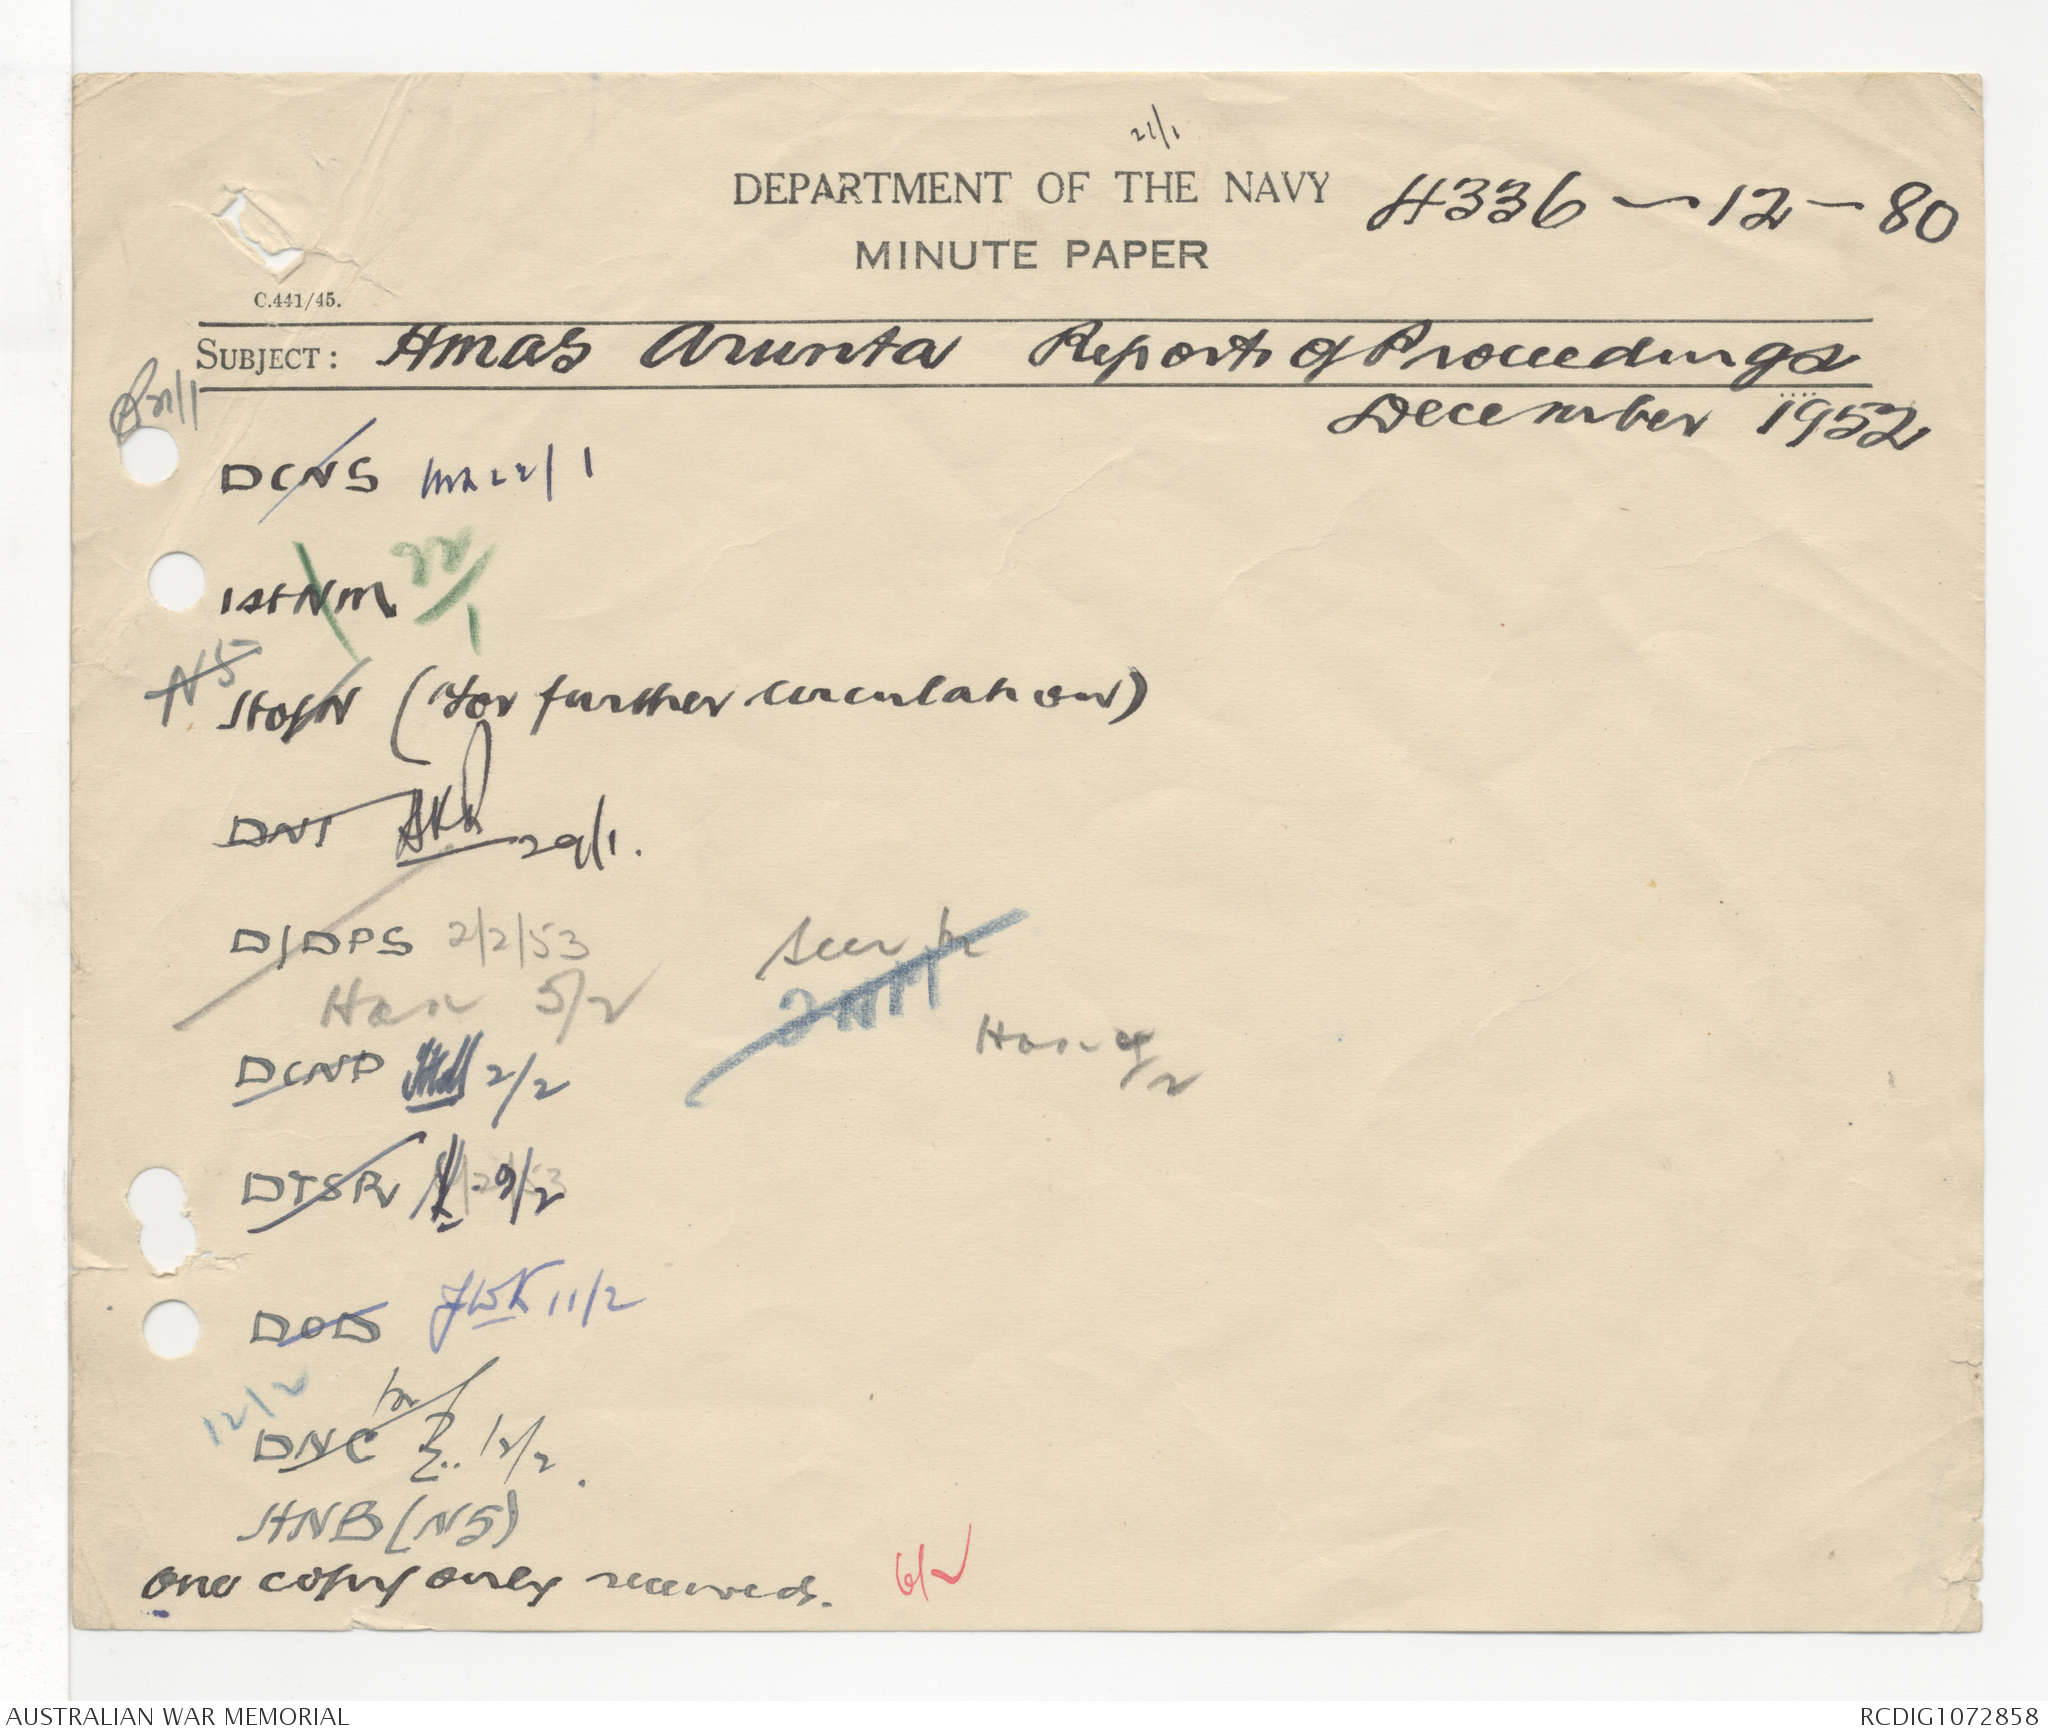 21/1
DEPARTMENT OF THE NAVY 4336-12-80
MINUTE PAPER
C.441/45.
SUBJECT: HMAS Arunta Reports of Proceedings
December 1952
DCNS 22/1
1stNM 22/1
N5
HofN (For further circulation)
DNI 29/1.
D/DPS 2/2/53
5/2
Seen
DCNP 2/2
DTSR 9/2
DOD JWK 11/2
12/2
DNC 12/2.
HNB (N5)
one copy only received. 6/2
AUSTRALIAN WAR MEMORIAL RCDIG1072858